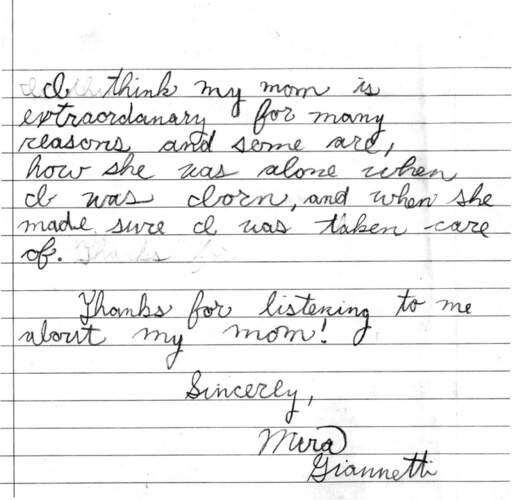 I think my mom is
extraordanary for many
reasons and some are,
how she was alone when
I was born, and when she
made sure I was taken care
of. Thanks for
Thanks for listening to me
about my mom!
Sincerly,
Mira
Giannetti